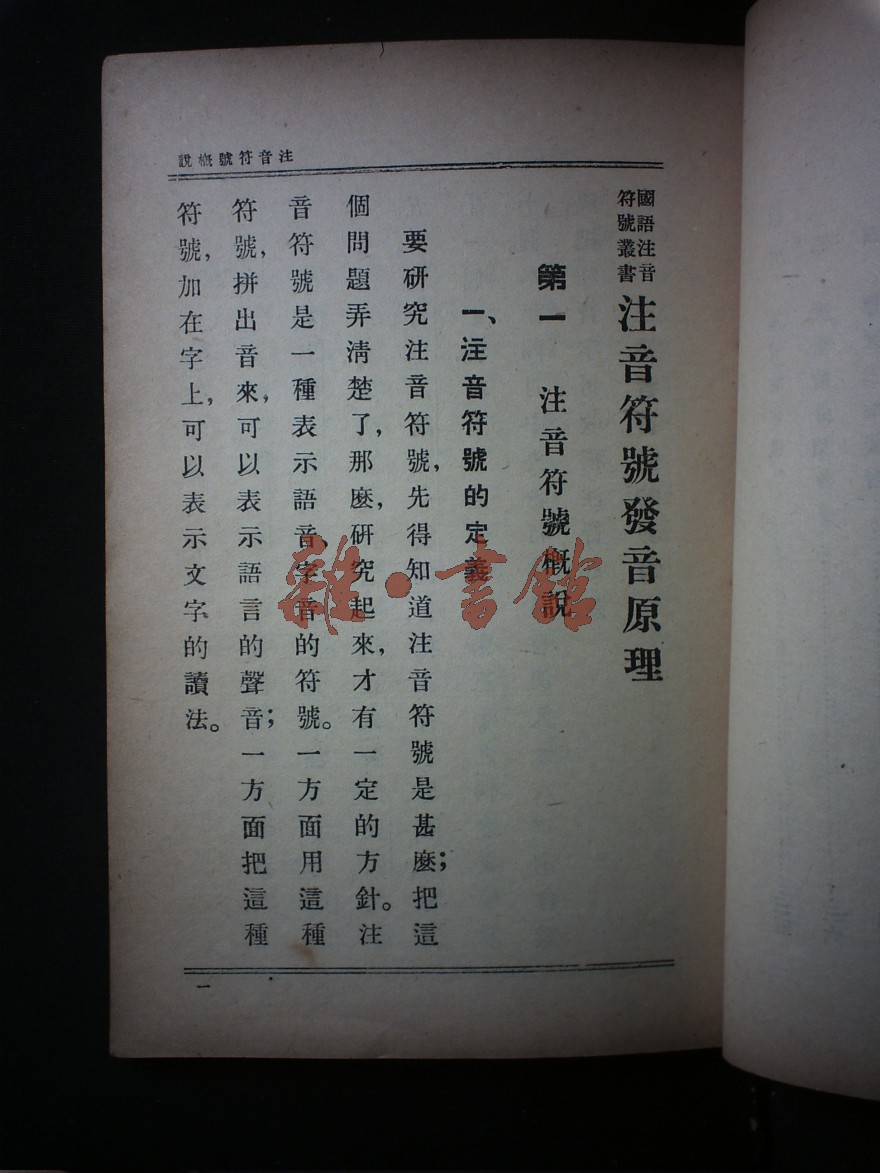 注音符號概說
國語注音
符號叢書
注音符號發音原理
第一　注音符號概說
一、注音符號的定義
要研究注音符號，先得知道注音符號是甚麽；把這
個問題弄清楚了，那麽，研究起來，才有一定的方針。注
音符號是一種表示語音、字音的符號。一方面用這種
符號，拼出音來，可以表示語言的聲音；一方面把這種
符號，加在字上，可以表示文字的讀法。
一
雜·書館